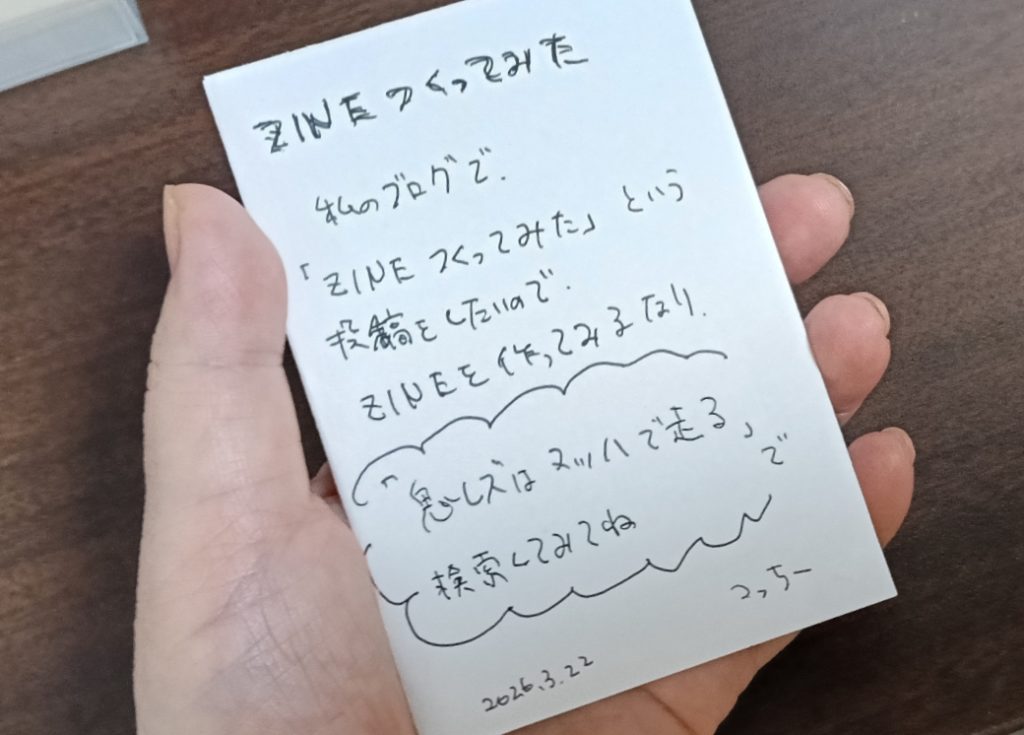 ZINEつくってみた
私のブログで、
「ZINEつくってみた」という
投稿をしたいので、
ZINEを作ってみるなり、
「息レズはマッハで走る」で
検索してみてね
こっちー
2026.3.22